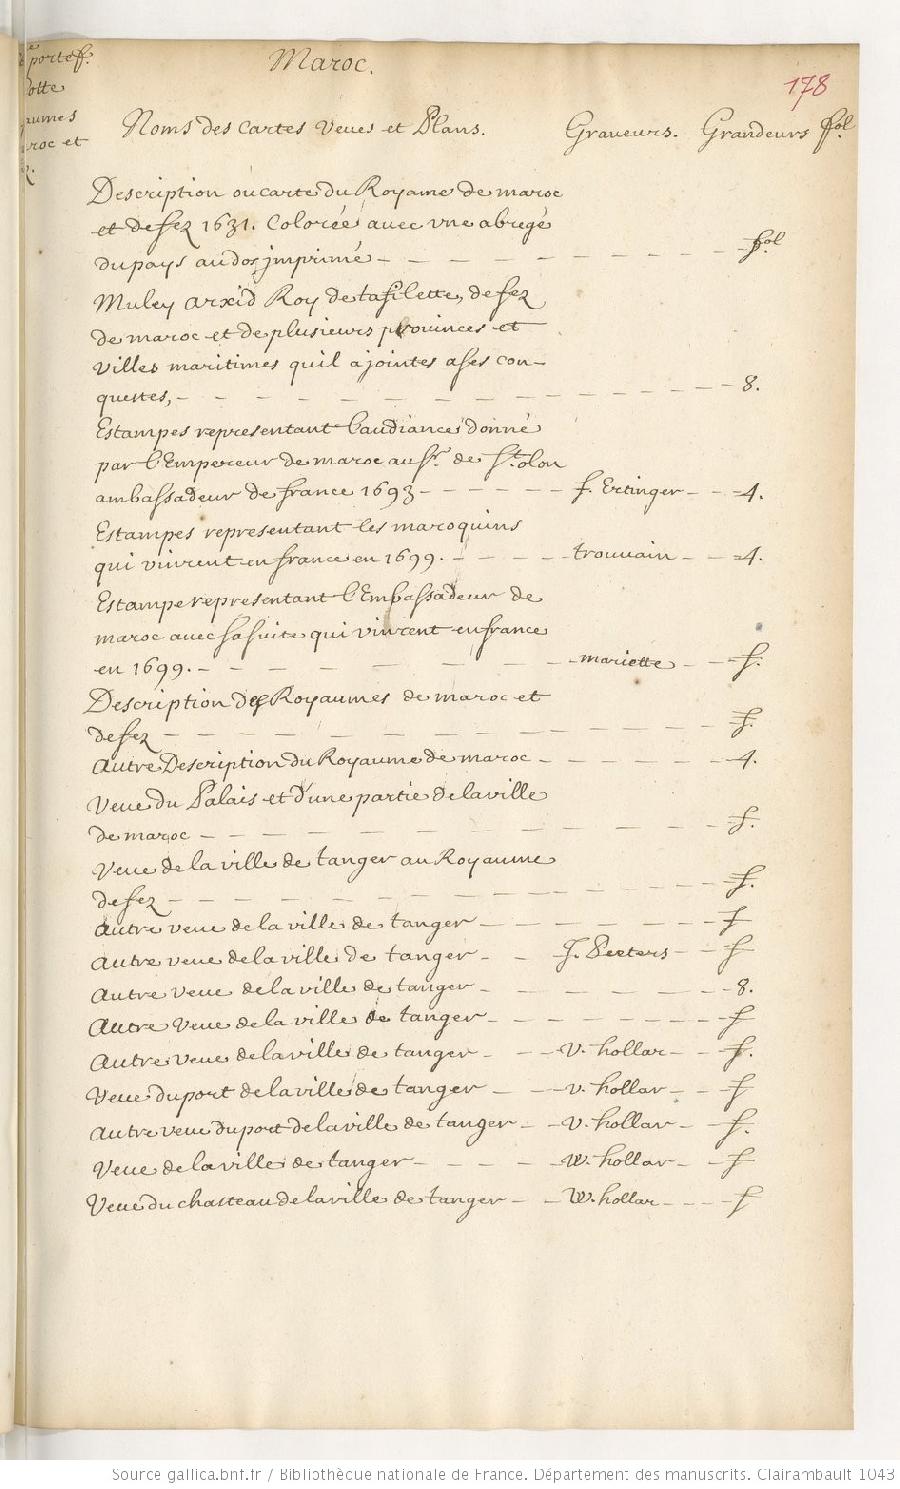 e portef.
otte
aumes
roc et
Maroc.
178
Noms des Cartes Veues et Plans. Graveurs. Grandeurs fol
Description ou carte du Royame de maroc
et defez 1631. Colorée avec vne abregé
du pays au dos jmprimé fol
Muley arxid Roy de tafilette, defez
de maroc et de plusieurs provinces et
villes maritimes quil a jointes a ses con-
questes, 8.
Estampes representant laudiance donné
par l'Empereur de maroc au Sr. de St. olon
ambassadeur de france 1693 f. Ertinger 4.
Estampes representant les maroquins
qui vinrent en france en 1699. trouvain 4.
Estampe representant l'Embassadeur de
maroc avec sa suite qui vinrent en france
en 1699. mariette f.
Description des Royaumes de maroc et
defez f.
Autre Description du Royaume de maroc 4.
Veue du Palais et d'une partie de la ville
de maroc f.
Veue de la ville de tanger au Royaume
defez f.
Autre veue de la ville de tanger f
Autre veue de la ville de tanger J. Peeters f
Autre veue de la ville de tanger 8.
Autre veue de la ville de tanger f
Autre veue de la ville de tanger v. hollar f.
Veue du port de la ville de tanger v. hollar f
Autre veue du port de la ville de tanger v. hollar f.
Veue de la ville de tanger w. hollar f
Veue du chasteau de la ville de tanger w. hollar f
Source gallica.bnf.fr / Bibliothèque nationale de France. Département des manuscrits. Clairambault 1043